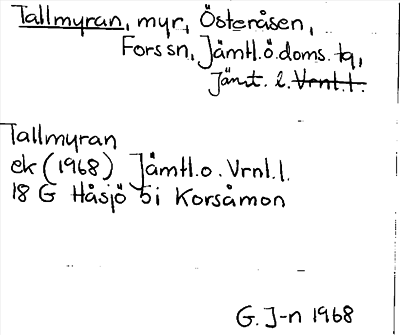 Tallmyran, myr, Österåsen,
Fors sn, Jämtl.ö.doms. tq,
Jämt. l. Vrnl.l.
Tallmyran
ek (1968) Jämtl.o. Vrnl.l.
18 G Håsjö 5i Korsåmon
G. J-n 1968